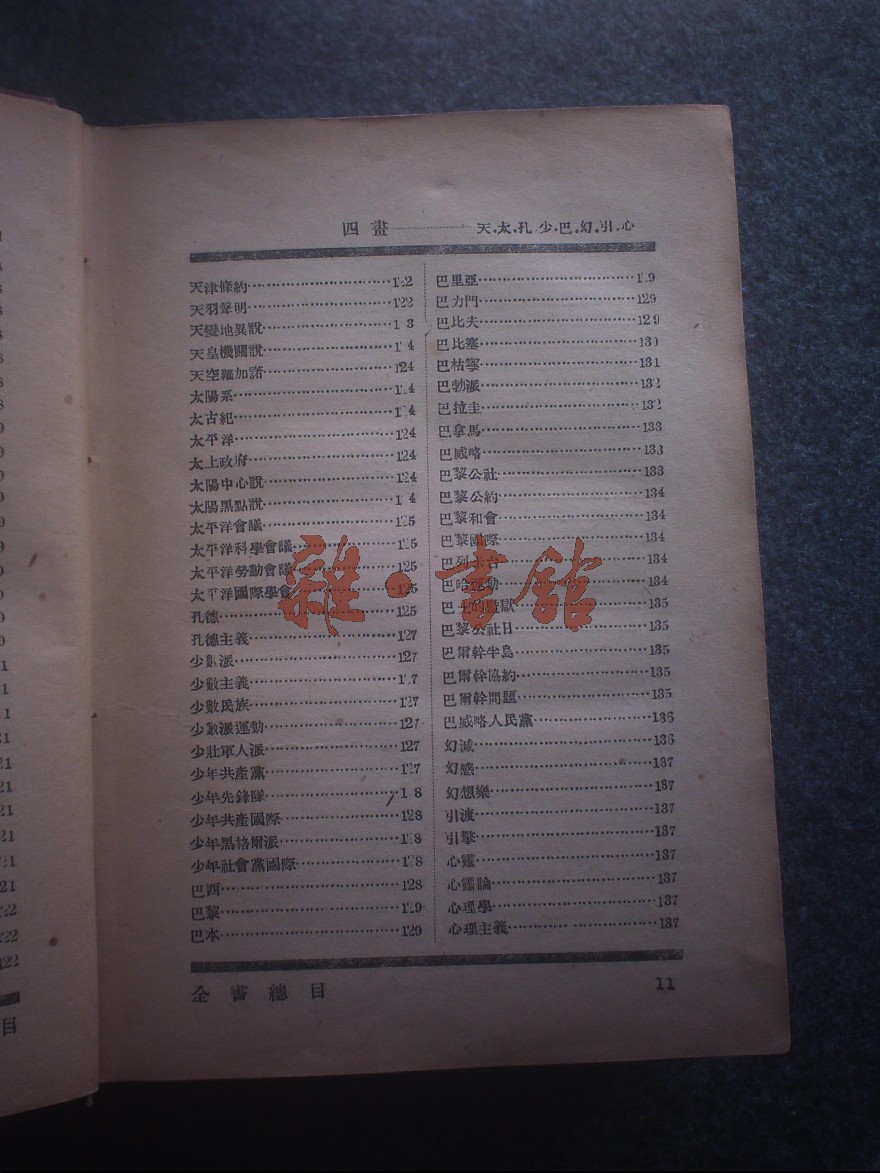 四畫————天.太.孔.少.巴.幻.引.心
天津條約 122
天羽聲明 122
天變地異說
天皇機關說
天空羅加諾 124
太陽系
太古紀
太平洋 124
太上政府 124
太陽中心說 124
太陽黑點說
太平洋會議
太平洋科學會議
太平洋勞動會議 125
太平洋國際學會 125
孔德 125
孔德主義 127
少數派 127
少數主義
少數民族 127
少數派運動 127
少壯軍人派 127
少年共產黨 127
少年先鋒隊
少年共產國際 128
少年黑格爾派
少年社會黨國際
巴西 128
巴黎
巴本 129
巴里亞
巴力門 129
巴比夫 129
巴比塞 130
巴枯寧 131
巴勃派 132
巴拉圭 132
巴拿馬 133
巴威略 133
巴黎公社 133
巴黎公約 134
巴黎和會 134
巴黎國際 134
巴列卡台 134
巴哈運動 134
巴士的監獄 135
巴黎公社日 135
巴爾幹半島 135
巴爾幹協約 135
巴爾幹問題 135
巴威略人民黨 136
幻滅 136
幻惑 137
幻想樂 137
引渡 137
引擎 137
心靈 137
心靈論 137
心理學 137
心理主義 137
全書總目 11
雜·書館
目